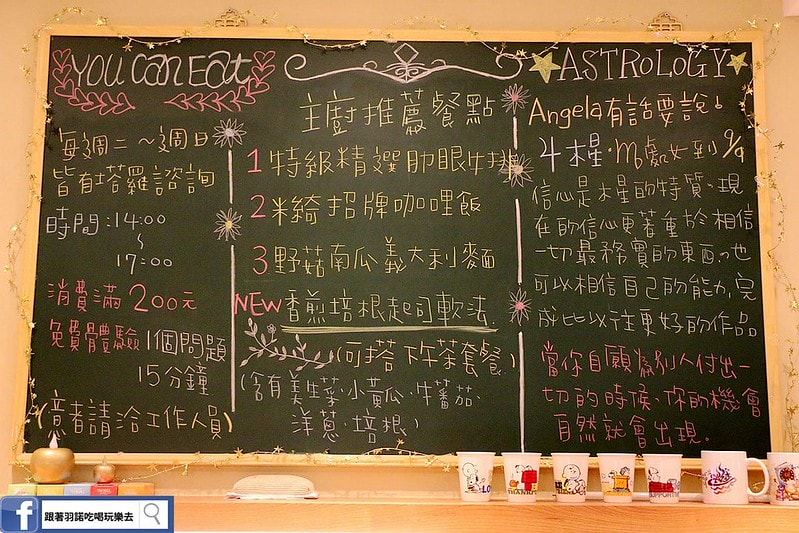 YOU Can Eat
每週二～週日
皆有塔羅諮詢
時間:14:00
～
17:00
消費滿200元
免費體驗1個問題
15分鐘
(意者請洽工作人員)
主廚推薦餐點
1 特級精選肋眼牛排
2 米綺招牌咖哩飯
3 野菇南瓜義大利麵
NEW 香煎培根起司軟法
(可搭下午茶套餐)
(含有美生菜·小黃瓜·牛蕃茄·
洋蔥·培根)
ASTROLOGY
Angela有話要說!
木星·♍處女到9/9
信心是木星的特質。現
在的信心更著重於相信
一切最務實的東西,也
可以相信自己的能力,完
成比以往更好的作品
當你自願為別人付出一
切的時候,你的機會
自然就會出現。
跟著羽諾吃喝玩樂去